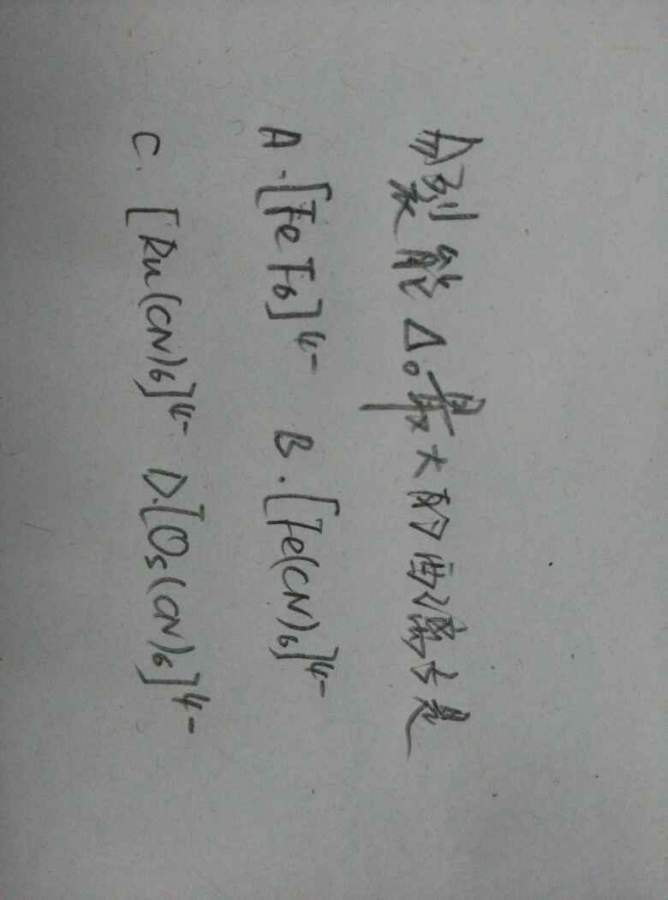 分裂能Δo最大的配离子是
A.[FeF6]4- B.[Fe(CN)6]4-
C.[Ru(CN)6]4- D.[Os(CN)6]4-